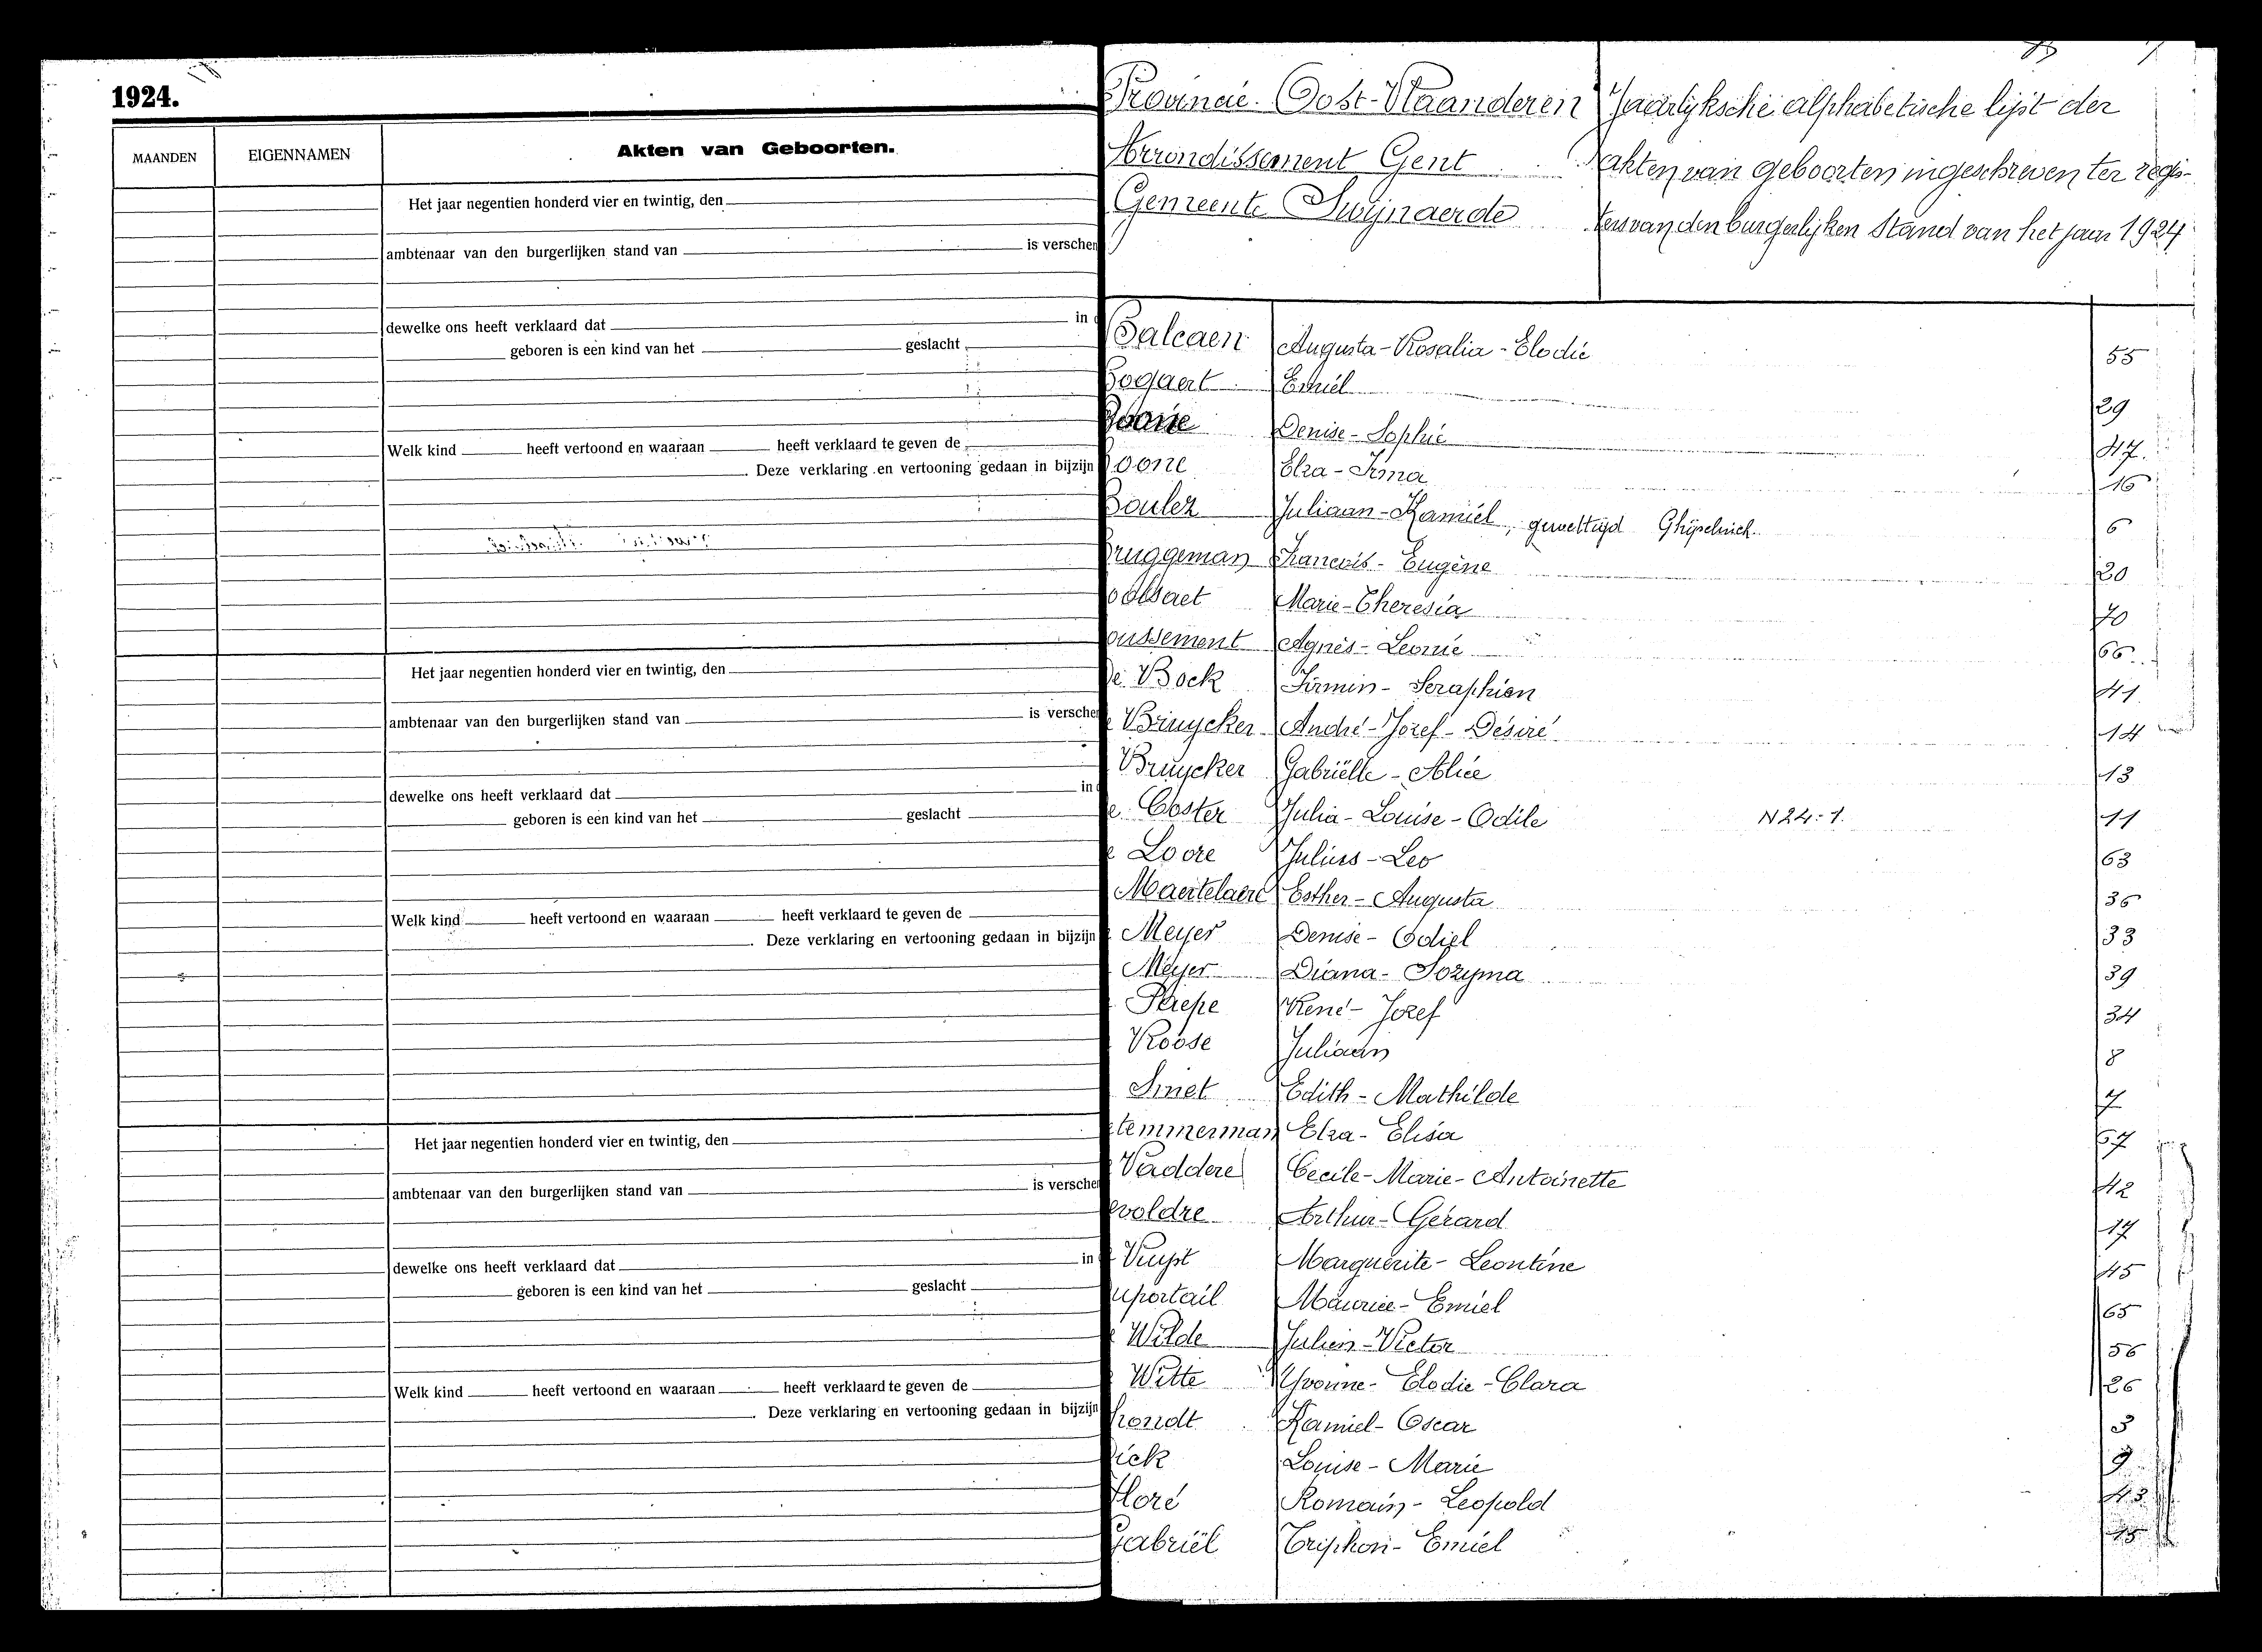 1924.
MAANDEN EIGENNAMEN Akten van Geboorten.
Het jaar negentien honderd vier en twintig, den
ambtenaar van den burgerlijken stand van is verschen
dewelke ons heeft verklaard dat in
geboren is een kind van het geslacht
Welk kind heeft vertoond en waaraan heeft verklaard te geven de
Deze verklaring en vertooning gedaan in bijzijn
Het jaar negentien honderd vier en twintig, den
ambtenaar van den burgerlijken stand van is versche
dewelke ons heeft verklaard dat in
geboren is een kind van het geslacht
Welk kind heeft vertoond en waaraan heeft verklaard te geven de
Deze verklaring en vertooning gedaan in bijzijn
Het jaar negentien honderd vier en twintig, den
ambtenaar van den burgerlijken stand van is versche
dewelke ons heeft verklaard dat in
geboren is een kind van het geslacht
Welk kind heeft vertoond en waaraan heeft verklaard te geven de
Deze verklaring en vertooning gedaan in bijzijn
Provincie Oost-Vlaanderen
Arrondissement Gent
Gemeente Swijnaerde
Jaarlijksche alphabetische lijst der
akten van geboorten ingeschreven ter regis-
ters van den burgerlijken Stand van het jaar 1924
Balcaen Augusta-Rosalia-Elodie 55
Bogaert Emiel 29
Boone Denise-Sophie 47.
Boone Elza-Irma 16
Boulez Juliaan-Kamiel, gewettigd 6
Bruggeman Francois-Eugène 20
Marie-Theresia 70
oussement Agnès-Leonie 66
De Bock Firmin-Seraphien 41
Bruycker André-Jozef-Désiré 14
Bruycker Gabriëlle-Alice 13
e Coster Julia-Louise-Odile N24:1. 11
e Loore Julius-Leo 63
Maertelaere Esther-Augusta 36
Meyer Denise-Odiel 33
Meyer Diana-Zozyma 39
Paepe René-Jozef 34
Roose Juliaan 8
Smet Edith-Mathilde 7
temmerman Elza-Elisa 67
Vaddere Cecile-Marie-Antoinette 42
evoldre Arthur-Gerard 17
Vuyst Marguerite-Leontine 45
uportail Maurice-Emiel 65
Wilde Julien-Victor 56
Witte Yvonne-Elodie-Clara 26
hondt Kamiel-Oscar 5
ick Louise-Marie 9
Floré Romain-Leopold
Gabriël Triphon-Emiel